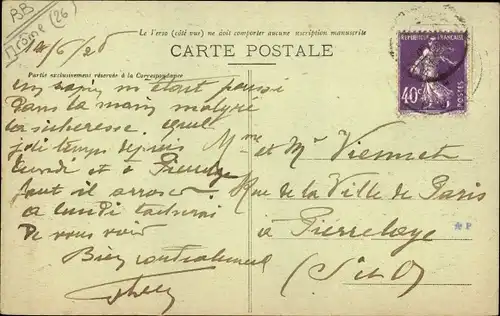 BB
Drôme (26)
Le Verso (côté vue) ne doit comporter aucune inscription manuscrite
14/6/26
CARTE POSTALE
RÉPUBLIQUE FRANÇAISE
40c
POSTES
Partie exclusivement réservée à la Correspondance
un sapin m'était poussé
Dans la main malgré
la sécheresse. quel
joli temps depuis
lundi et à Pierrelaye
faut il arroser
a lundi tacherai
De vous voir
Bien cordialement
Mme et Mr Viennet
Rue de la Ville de Paris
à Pierrelaye
(S et O)
P